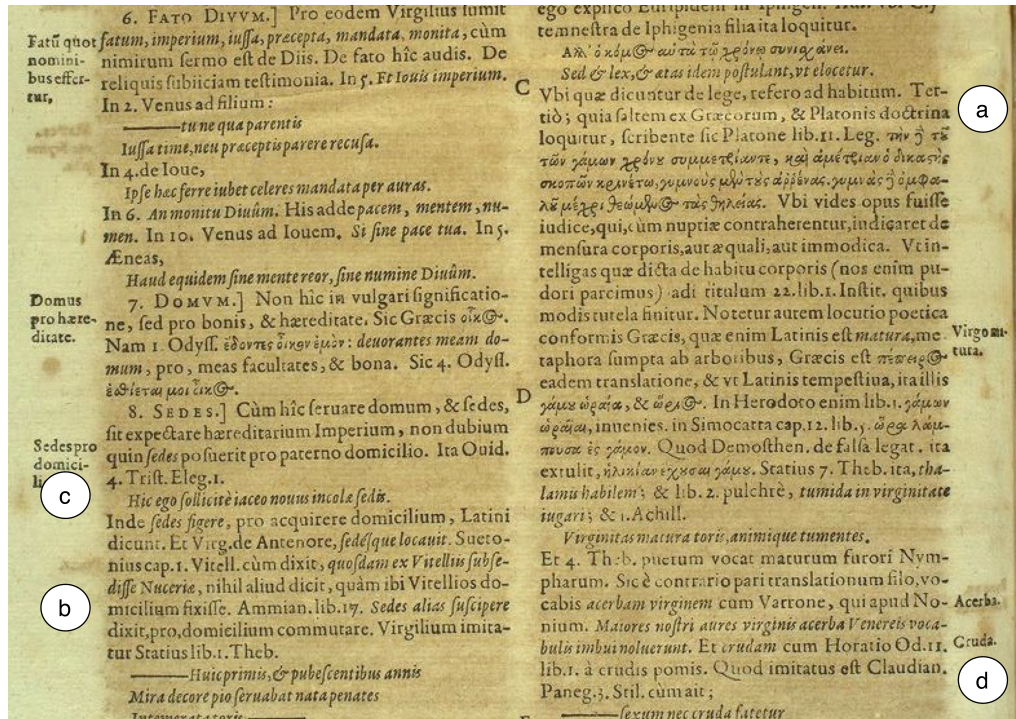 6. FATO DIVVM.] Pro eodem Virgilius sumit
Fatũ quot
nomini-
bus effer-
tur,
fatum, imperium, iussa, præcepta, mandata, monita, cùm
nimirum sermo est de Diis. De fato hîc audis. De
reliquis subiiciam testimonia. In 5. Et Iouis imperium.
In 2. Venus ad filium:
———tu ne qua parentis
Iussa time, neu præceptis parere recusa.
In 4. de Ioue,
Ipse hæc ferre iubet celeres mandata per auras.
In 6. An monitu Diuûm. His adde pacem, mentem, nu-
men. In 10. Venus ad Iouem. Si sine pace tua. In 5.
Æneas,
Haud equidem sine mente reor, sine numine Diuûm.
Domus
pro hære-
ditate.
7. DOMVM.] Non hîc in vulgari significatio-
ne, sed pro bonis, & hæreditate. Sic Græcis οἶκος.
Nam 1. Odyss. ἔδοντες οἶκον ἐμόν: deuorantes meam do-
mum, pro, meas facultates, & bona. Sic 4. Odyss.
ἐσθίεται μοι οἶκος.
8. SEDES.] Cùm hîc seruare domum, & sedes,
sit expectare hæreditarium Imperium, non dubium
Sedes pro
domici-
li
quin sedes posuerit pro paterno domicilio. Ita Ouid.
4. Trist. Eleg. 1.
c
Hic ego sollicitè iaceo nouus incola sedis.
Inde sedes figere, pro acquirere domicilium, Latini
dicunt. Et Virg. de Antenore, sedésque locauit. Sueto-
nius cap. 1. Vitell. cùm dixit, quosdam ex Vitelliis subse-
disse Nuceriæ, nihil aliud dicit, quàm ibi Vitellios do-
b
micilium fixisse. Ammian. lib. 17. Sedes alias suscipere
dixit, pro, domicilium commutare. Virgilium imita-
tur Statius lib. 1. Theb.
———Huic primis, & pubescentibus annis
Mira decore pio seruabat nata penates
Intemerata toris———
ego explico Euripidem in Iphigen.
temnestra de Iphigenia filia ita loquitur.
Ἀλλ' ὁ νόμος αὐτὰ τῷ χρόνῳ συνιχάνει.
Sed & lex, & ætas idem postulant, vt elocetur.
C
Vbi quæ dicuntur de lege, refero ad habitum. Ter-
a
tiò; quia saltem ex Græcorum, & Platonis doctrina
loquitur, scribente sic Platone lib. 11. Leg. τὴν δὲ τοῦ
τῶν γάμων χρόνου συμμετρίαν τε, καὶ ἀμετρίαν ὁ δικαστὴς
σκοπῶν κρινέτω, γυμνοὺς μὲν τοὺς ἄρρενας, γυμνὰς δὲ ὀμφα-
λοῦ μέχρι θεώμενος τὰς θηλείας. Vbi vides opus fuisse
iudice, qui, cùm nuptiæ contraherentur, iudicaret de
mensura corporis, aut æquali, aut immodica. Vt in-
telligas quæ dicta de habitu corporis (nos enim pu-
dori parcimus) adi titulum 22. lib. 1. Instit. quibus
modis tutela finitur. Notetur autem locutio poetica
Virgo ma-
tura.
conformis Græcis, quæ enim Latinis est matura, me
taphora sumpta ab arboribus, Græcis est πέπειρος
eadem translatione, & vt Latinis tempestiua, ita illis
D
γάμου ὡραία, & ὥριος. In Herodoto enim lib. 1. γάμων
ὡραῖαι, inuenies. in Simocatta cap. 12. lib. 5. ὥρα λάμ-
πουσα ἐς γάμον. Quod Demosthen. de falsa legat. ita
extulit, ἡλικίαν ἔχουσαι γάμου. Statius 7. Theb. ita, tha-
lamis habilem; & lib. 2. pulchrè, tumida in virginitate
iugari; & 1. Achill.
Virginitas matura toris, animique tumentes.
Et 4. Theb. puerum vocat maturum furori Nym-
pharum. Sic è contrario pari translationum filo, vo-
Acerba.
cabis acerbam virginem cum Varrone, qui apud No-
nium. Maiores nostri aures virginis acerbæ Venereis voca-
Cruda.
bulis imbui noluerunt. Et crudam cum Horatio Od. 11.
lib. 1. à crudis pomis. Quod imitatus est Claudian.
d
Paneg. 3. Stil. cùm ait;
———sexum nec cruda fatetur